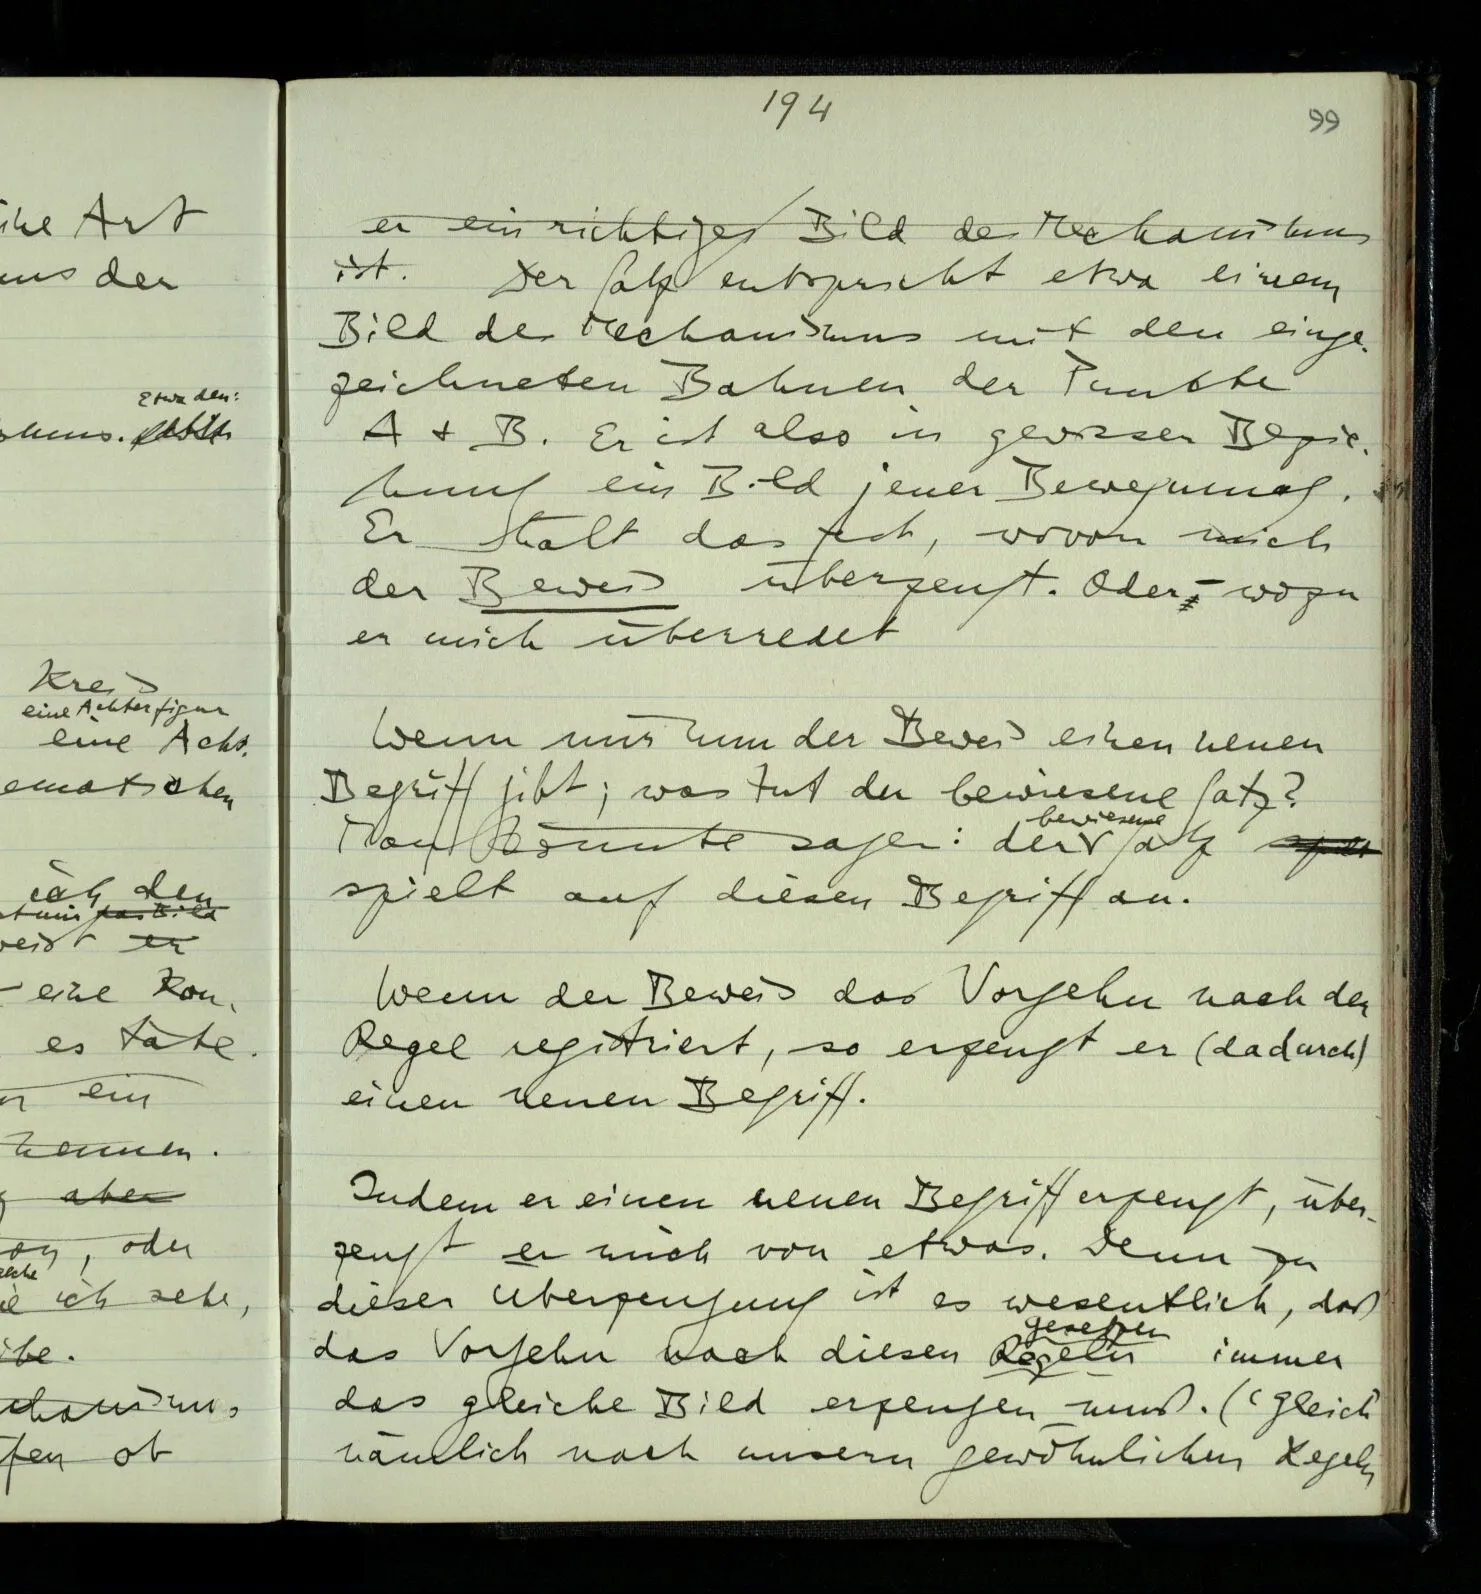 194
99
ine Art
uns der
Etwa den:
Kreis
eine Achterfigur
eine Acht.
ematischen
ich den
t mir das Bild
weist er
– eine Kon.
es täte.
ein
kennen.
aber
oder
ie ich sehe,
ibe.
chanismus
fen ob
er ein richtiges Bild des Mechanismus
ist. Der Satz entspricht etwa einem
Bild des Mechanismus mit den einge-
zeichneten Bahnen der Punkte
A + B. Er ist also in gewisser Bezie-
hung ein Bild jener Bewegung.
Er hält das fest, wovon mich
der Beweis überzeugt. Oder – wozu
er mich überredet
Wenn mir nun der Beweis einen neuen
Begriff gibt; was tut der bewiesene Satz?
bewiesene
Man könnte sagen: der Satz
spielt auf diesen Begriff an.
Wenn der Beweis das Vorgehn nach der
Regel registriert, so erzeugt er (dadurch)
einen neuen Begriff.
Indem er einen neuen Begriff erzeugt, über-
zeugt er mich von etwas. Denn zu
dieser Überzeugung ist es wesentlich, daß
Gesetzen
das Vorgehn nach diesen Regeln immer
das gleiche Bild erzeugen muß. ('Gleich'
nämlich nach unsern gewöhnlichen Regeln